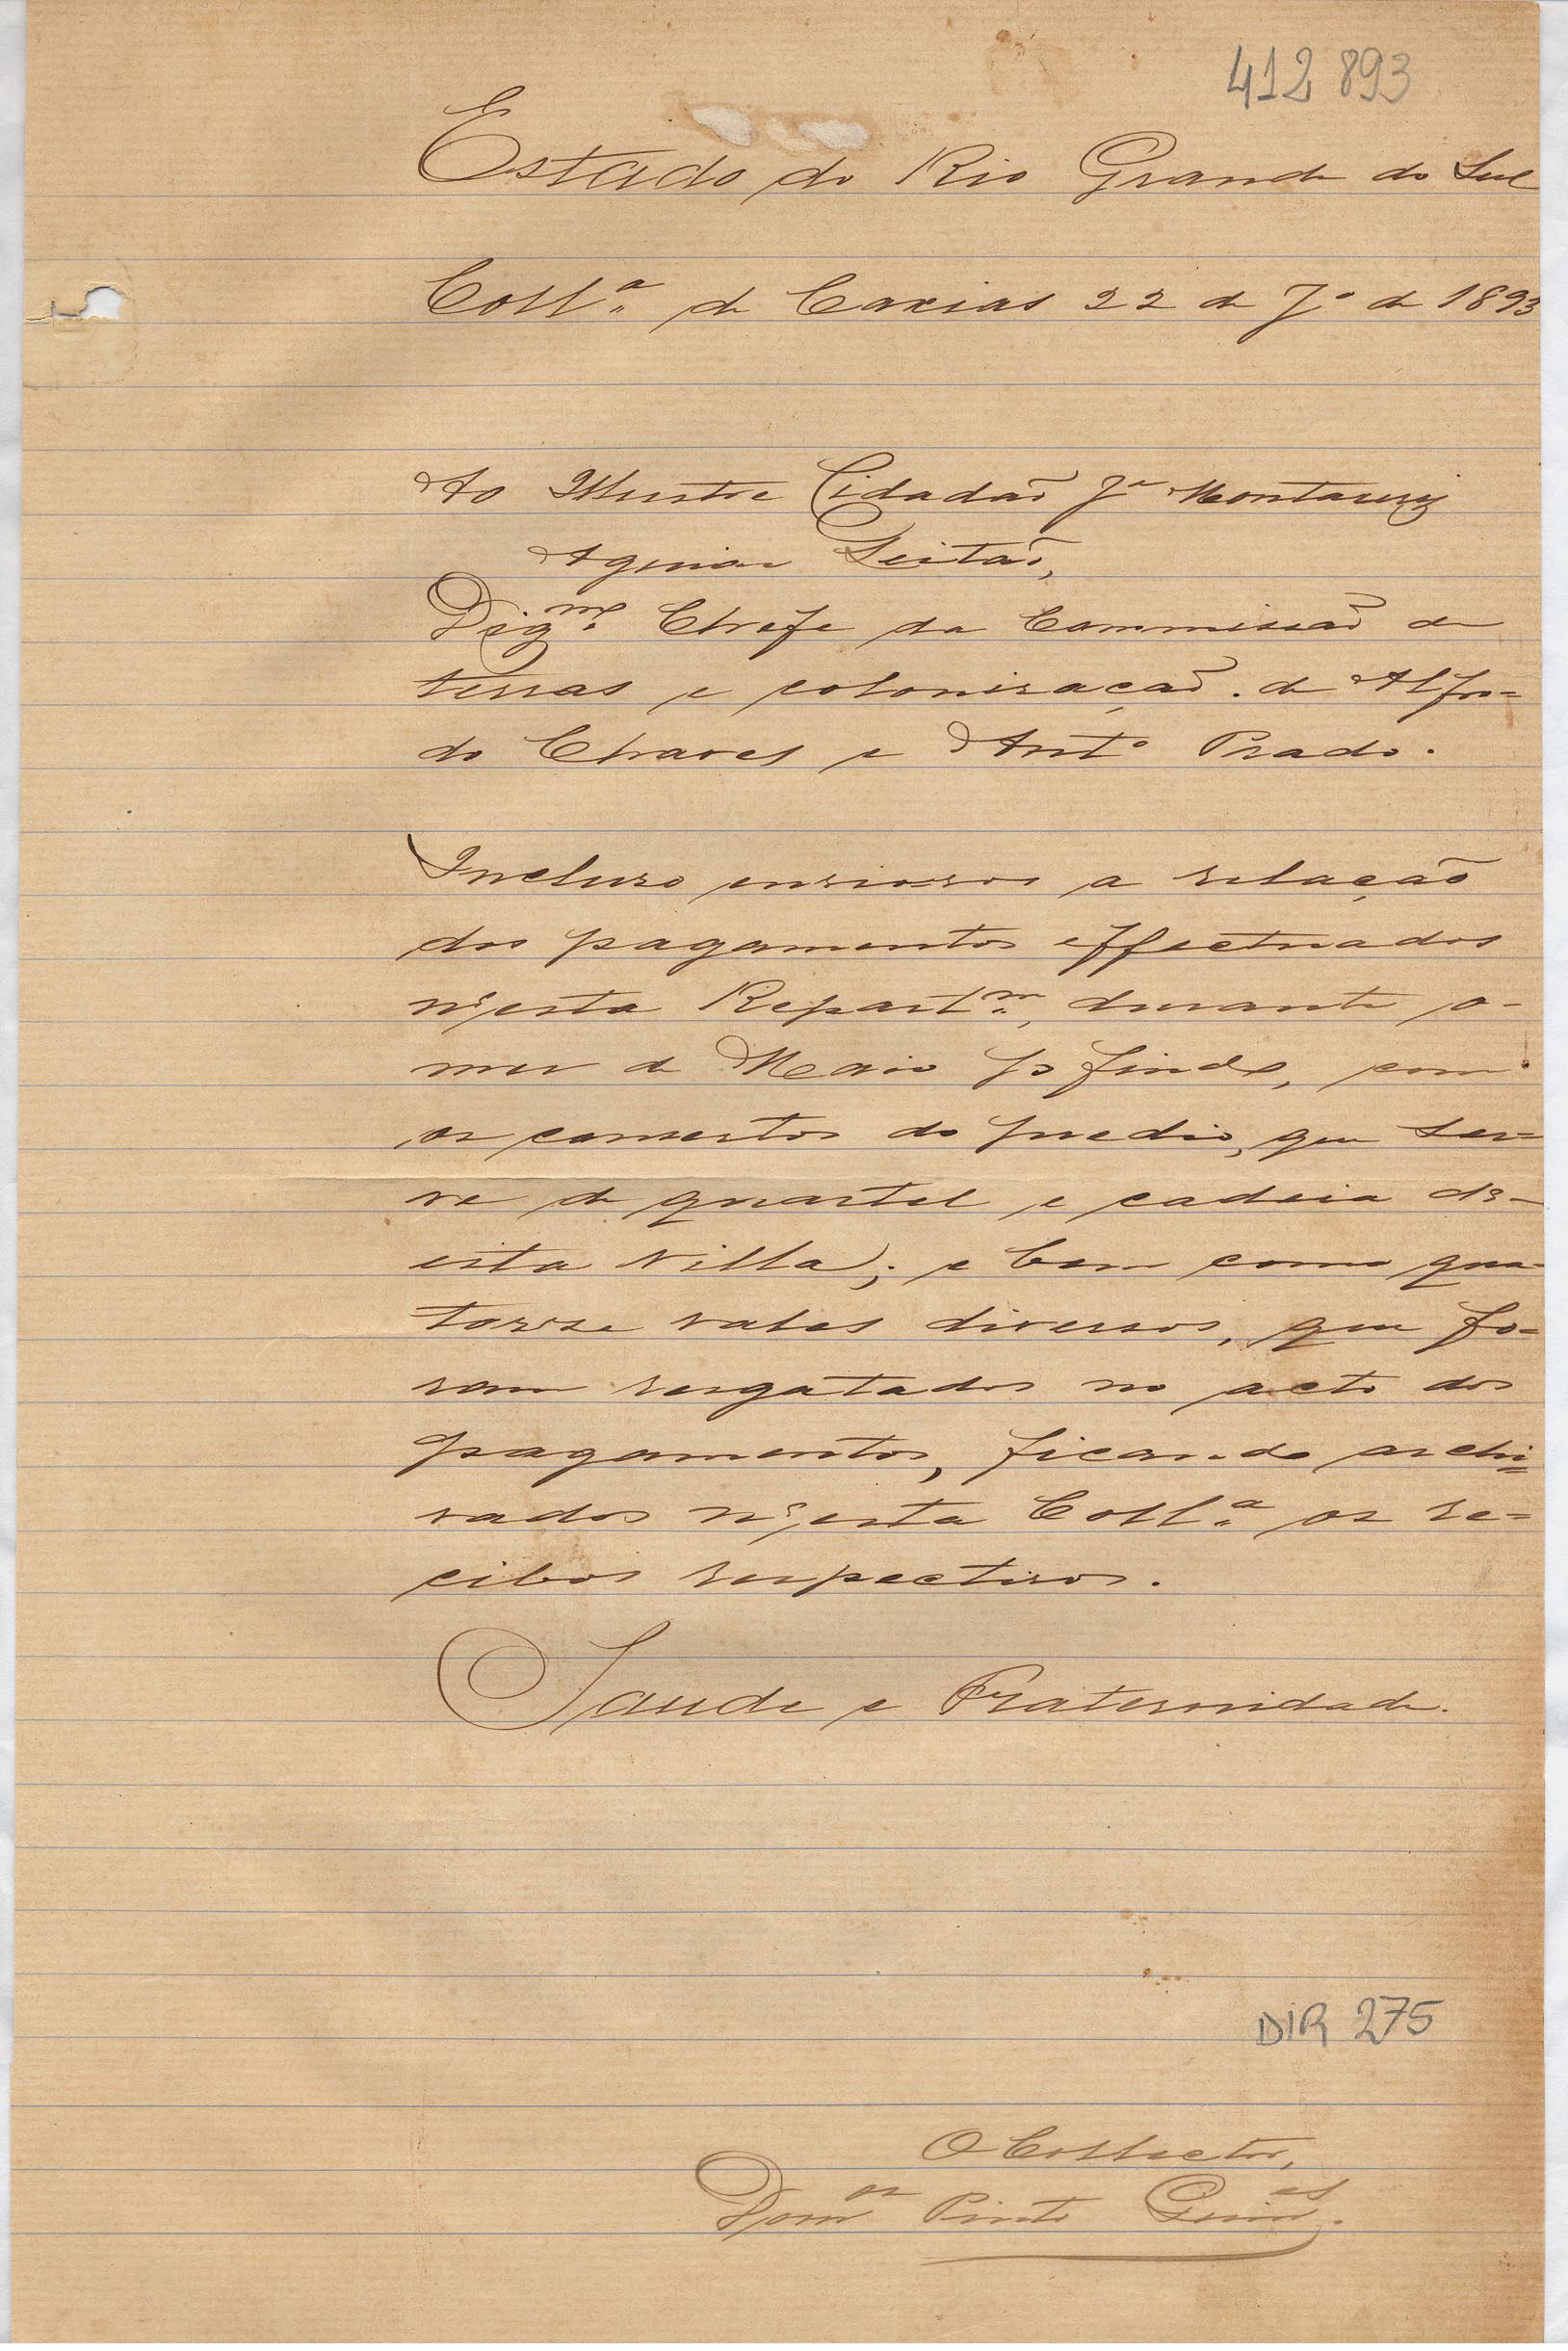 412 893
Estado do Rio Grande do Sul
Coll.ª de Caxias 22 de J.º de 1893
Ao Illustre Cidadão J.ª Montaury
Aguiar Leitão,
Dig.mo Chefe da Commissão de
terras e colonisação. de Alfre=
do Chaves e Ant.º Prado.
Incluso envio-vos a relação
dos pagamentos effectuados
n'esta Repart.m, durante o-
mez de Maio p. findo, com
os consertos do predio, que ser=
ve de quartel e cadeia d'-
esta Villa; e bem como qua-
torze vales diversos, que fo=
ram resgatados no acto dos
pagamentos, ficando archi=
vados n'esta Coll.ª os re=
cibos respectivos.
Saude e Fraternidade.
DIR 275
O Collector,
Dom.os Pinto Guim.es